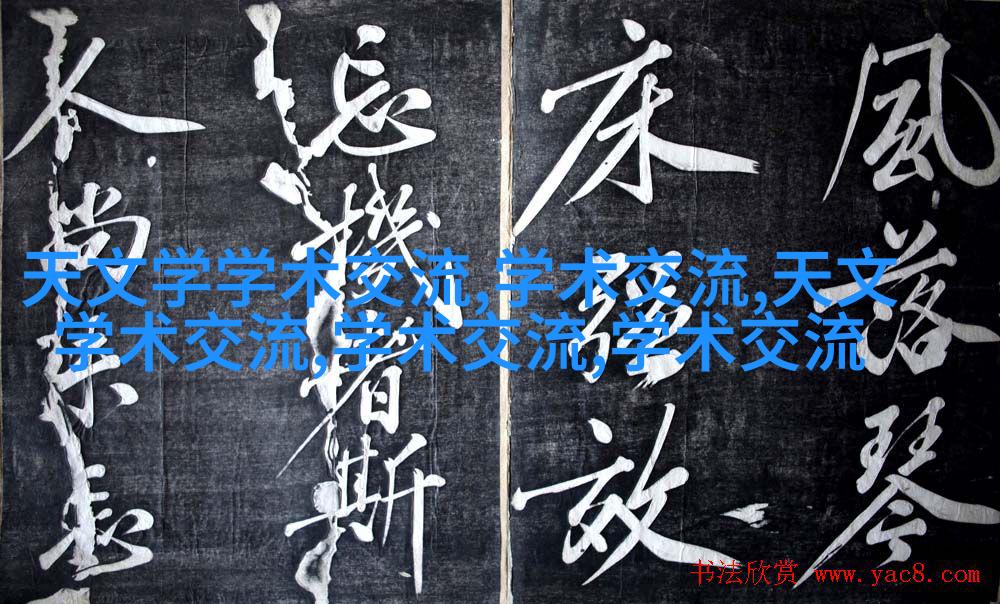 風落琴
床
忘機者斯
尚
天文学学术交流,学术交流,天文
学术交流,学术交流,学术交流
书法欣赏 www.yac8.com